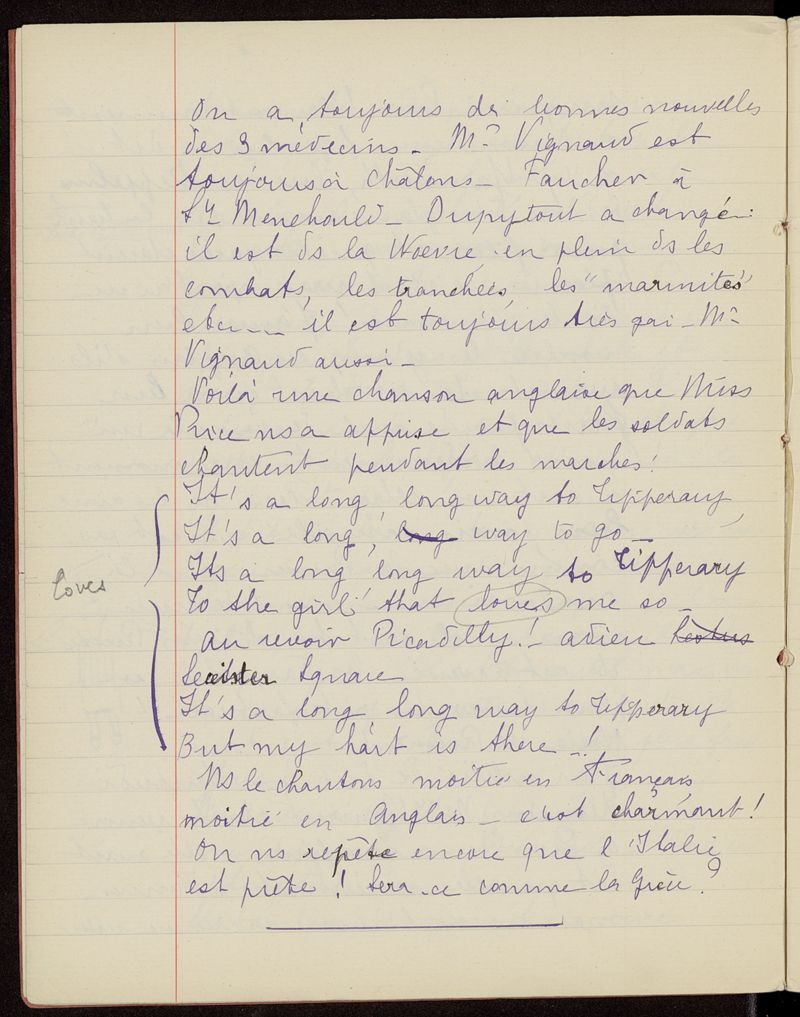 On a toujours de bonnes nouvelles
des 3 médecins - Mr Vignaud est
toujours à Châlons - Faucher à
Ste Menehould - Dupytout a changé :
il est ds la Woevre, en plein ds les
combats, les tranchées, les "marmites"
etc.... il est toujours très gai - Mr
Vignaud aussi -
Voilà une chanson anglaise que Miss
Price ns a apprise et que les soldats
chantent pendant les marches :
It's a long, long way to Tipperary,
It's a long, long way to go -
Its a long long way to Tipperary
loves
To the girl that loves me so -
au revoir Picadilly ! - adieu
Leicister Square
It's a long, long way to Tipperary
But my hart is there - !
Ns le chantons moitié en Français
moitié en Anglais - c'est charmant !
On ns répète encore que l'Italie
est prête ! Sera-ce comme la Grèce ?